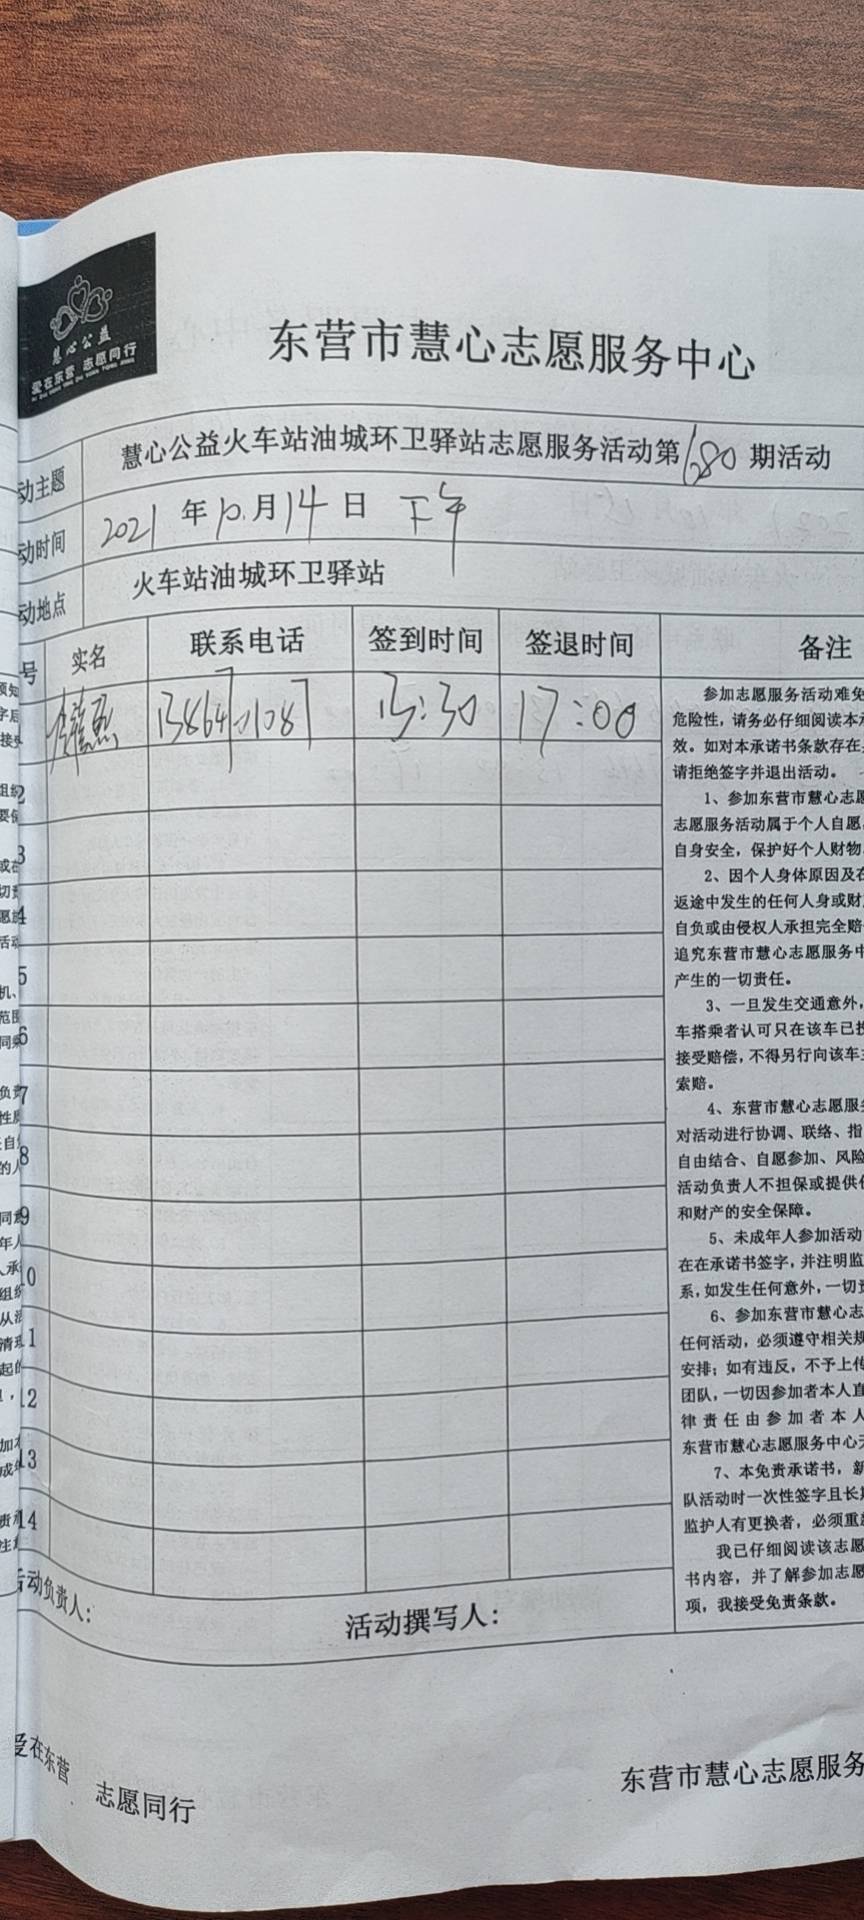 慧心公益
爱在东营 志愿同行
东营市慧心志愿服务中心
动主题 慧心公益火车站油城环卫驿站志愿服务活动第680期活动
动时间 2021年10月14日 下午
动地点 火车站油城环卫驿站
号 实名 联系电话 签到时间 签退时间 备注
13:30 17:00
2
3
4
5
6
7
8
9
10
11
12
13
14
参加志愿服务活动难免
危险性，请务必仔细阅读本承
效。如对本承诺书条款存在
请拒绝签字并退出活动。
1、参加东营市慧心志愿
志愿服务活动属于个人自愿
自身安全，保护好个人财物
2、因个人身体原因及在
返途中发生的任何人身或财
自负或由侵权人承担完全赔
追究东营市慧心志愿服务中
产生的一切责任。
3、一旦发生交通意外，
车搭乘者认可只在该车已投
接受赔偿，不得另行向该车主
索赔。
4、东营市慧心志愿服务
对活动进行协调、联络、指
自由结合、自愿参加、风险
活动负责人不担保或提供任
和财产的安全保障。
5、未成年人参加活动
在在承诺书签字，并注明监
系，如发生任何意外，一切责
6、参加东营市慧心志愿
任何活动，必须遵守相关规
安排；如有违反，不予上传
团队，一切因参加者本人直
律责任由参加者本人
东营市慧心志愿服务中心无
7、本免责承诺书，新
队活动时一次性签字且长期
监护人有更换者，必须重新
我已仔细阅读该志愿
书内容，并了解参加志愿
项，我接受免责条款。
活动负责人： 活动撰写人：
爱在东营 志愿同行
东营市慧心志愿服务